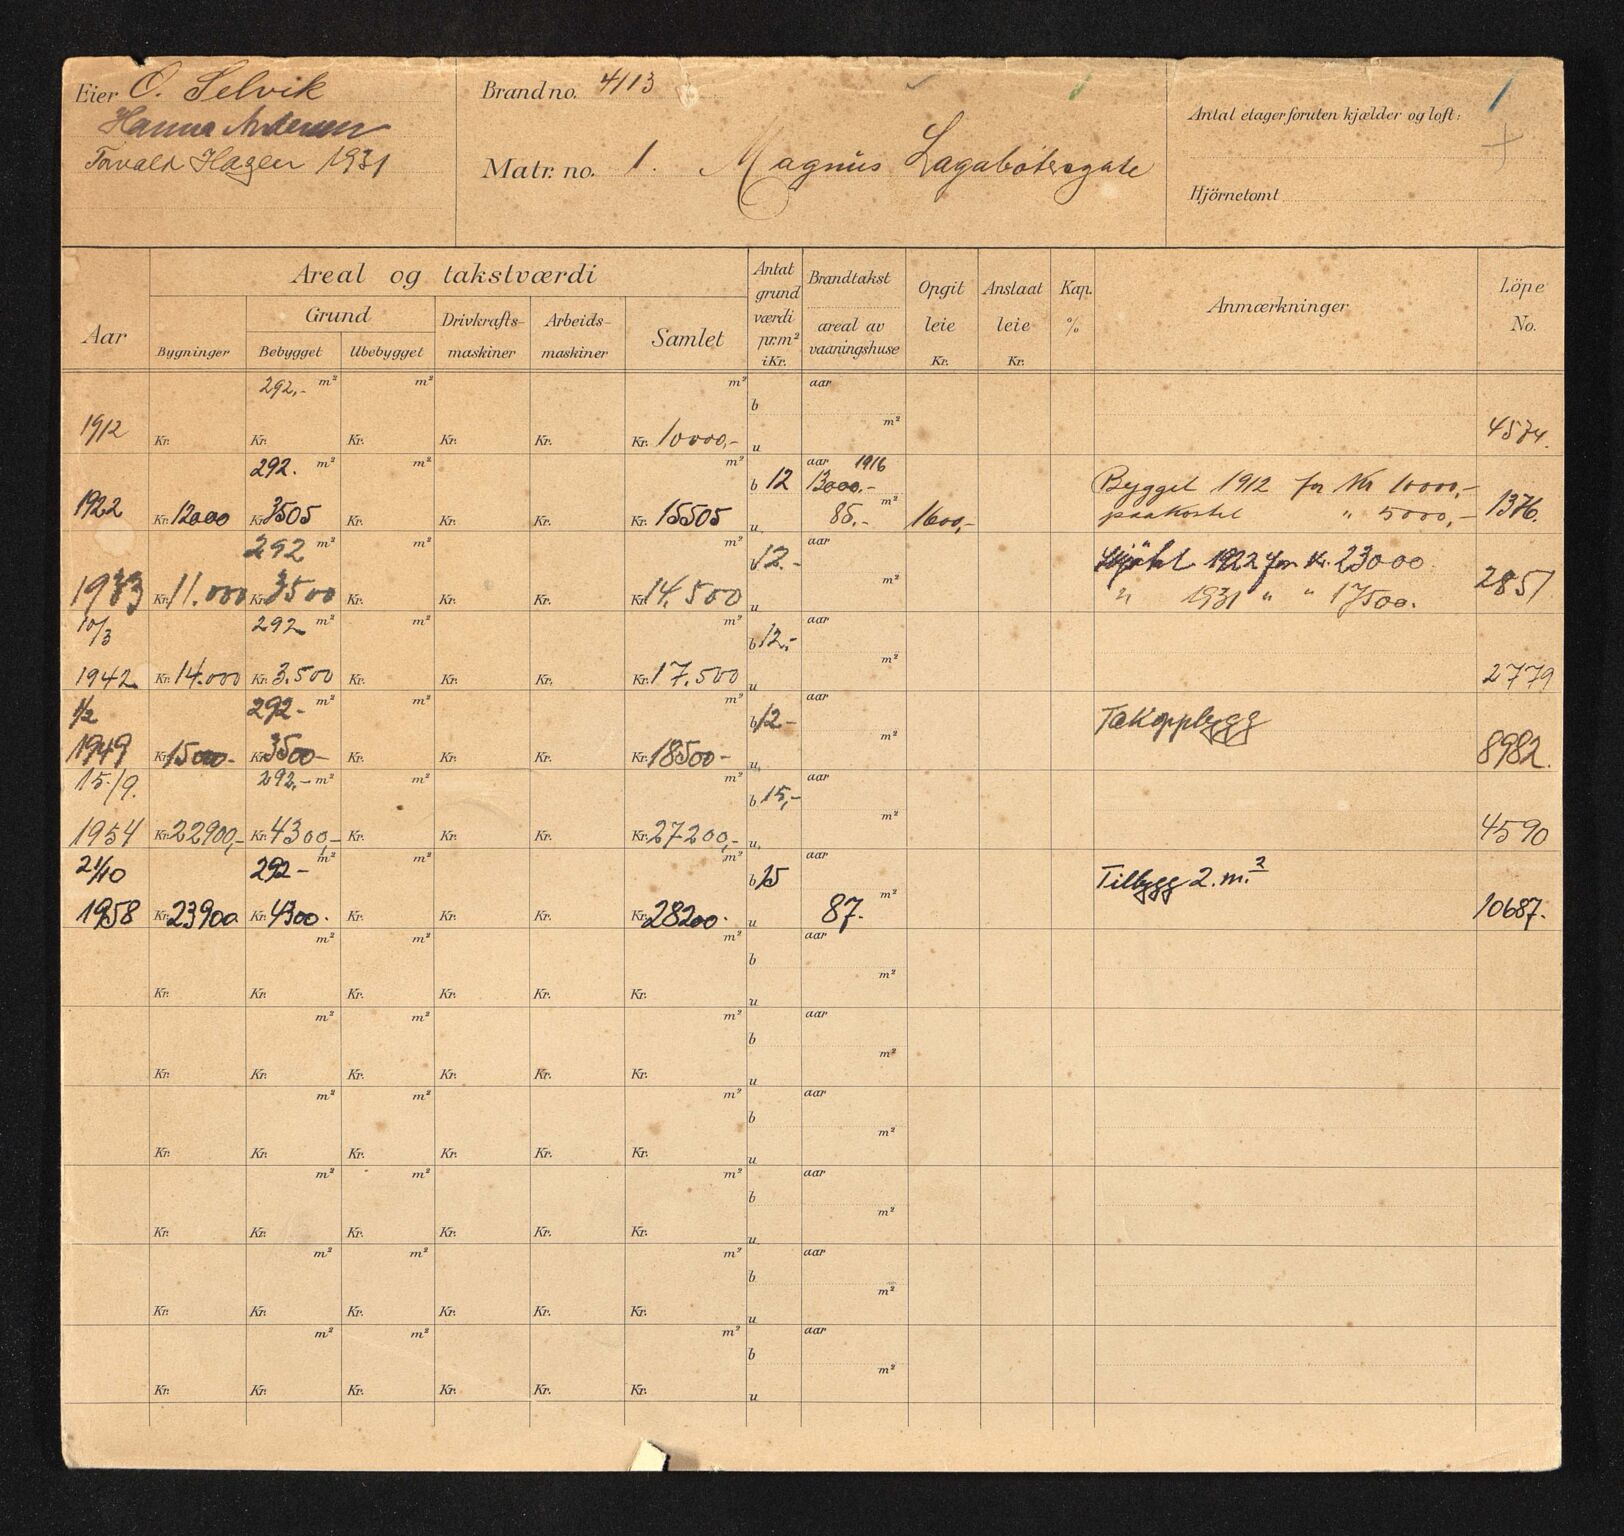 Eier O. Selvik
Hanna Andersen
Torvald Hagen 1931
Brand no. 4113
Matr. no. 1. Magnus Lagabøtersgate
Antal etager foruten kjælder og loft: 1
Hjörnetomt
Aar
Areal og takstværdi
Bygninger
Grund
Bebygget Ubebygget
Drivkrafts-
maskiner
Arbeids-
maskiner
Samlet
Antat
grund
værdi
pr. m²
i Kr.
Brandtakst
areal av
vaaningshuse
Opgit
leie
Kr.
Anslaat
leie
Kr.
Kap.
%
Anmærkninger
Löpe
No.
292,- m² m² m² aar
b
1912 Kr. Kr. Kr. Kr. Kr. Kr. 10000,- u m² 4574.
292. m² m² m² b 12 aar 1916 13000.- Bygget 1912 for Kr 10000,-
1922 Kr. 12000 Kr. 3505 Kr. Kr. Kr. Kr. 15505 u 85.- m² 1600,- paakostet " 5000,- 1376.
292 m² m² m² b 12.- aar Skjöht 1922 for Kr. 23000.
1933 Kr. 11.000 Kr. 3500 Kr. Kr. Kr. Kr. 14.500 u m² " 1931 " " 17500. 2851
10/3 292 m² m² m² b 12,- aar
1942 Kr. 14.000 Kr. 3.500 Kr. Kr. Kr. Kr. 17.500 u m² 2779
1/2 292- m² m² m² b 12- aar Takoppbygg
1949 Kr. 15000- Kr. 3500- Kr. Kr. Kr. Kr. 18500- u m² 8982.
15./9. 292,- m² m² m² b 15,- aar
1954 Kr. 22900,- Kr. 4300,- Kr. Kr. Kr. Kr. 27200,- u m² 4590
21/10 292- m² m² m² b 15 aar Tilbygg 2. m.²
1958 Kr. 23900 Kr. 4300. Kr. Kr. Kr. Kr. 28200. u 87. m² 10687.
m² m² m² b aar
Kr. Kr. Kr. Kr. Kr. Kr. u m²
m² m² m² b aar
Kr. Kr. Kr. Kr. Kr. Kr. u m²
m² m² m² b aar
Kr. Kr. Kr. Kr. Kr. Kr. u m²
m² m² m² b aar
Kr. Kr. Kr. Kr. Kr. Kr. u m²
m² m² m² b aar
Kr. Kr. Kr. Kr. Kr. Kr. u m²
m² m² m² b aar
Kr. Kr. Kr. Kr. Kr. Kr. u m²